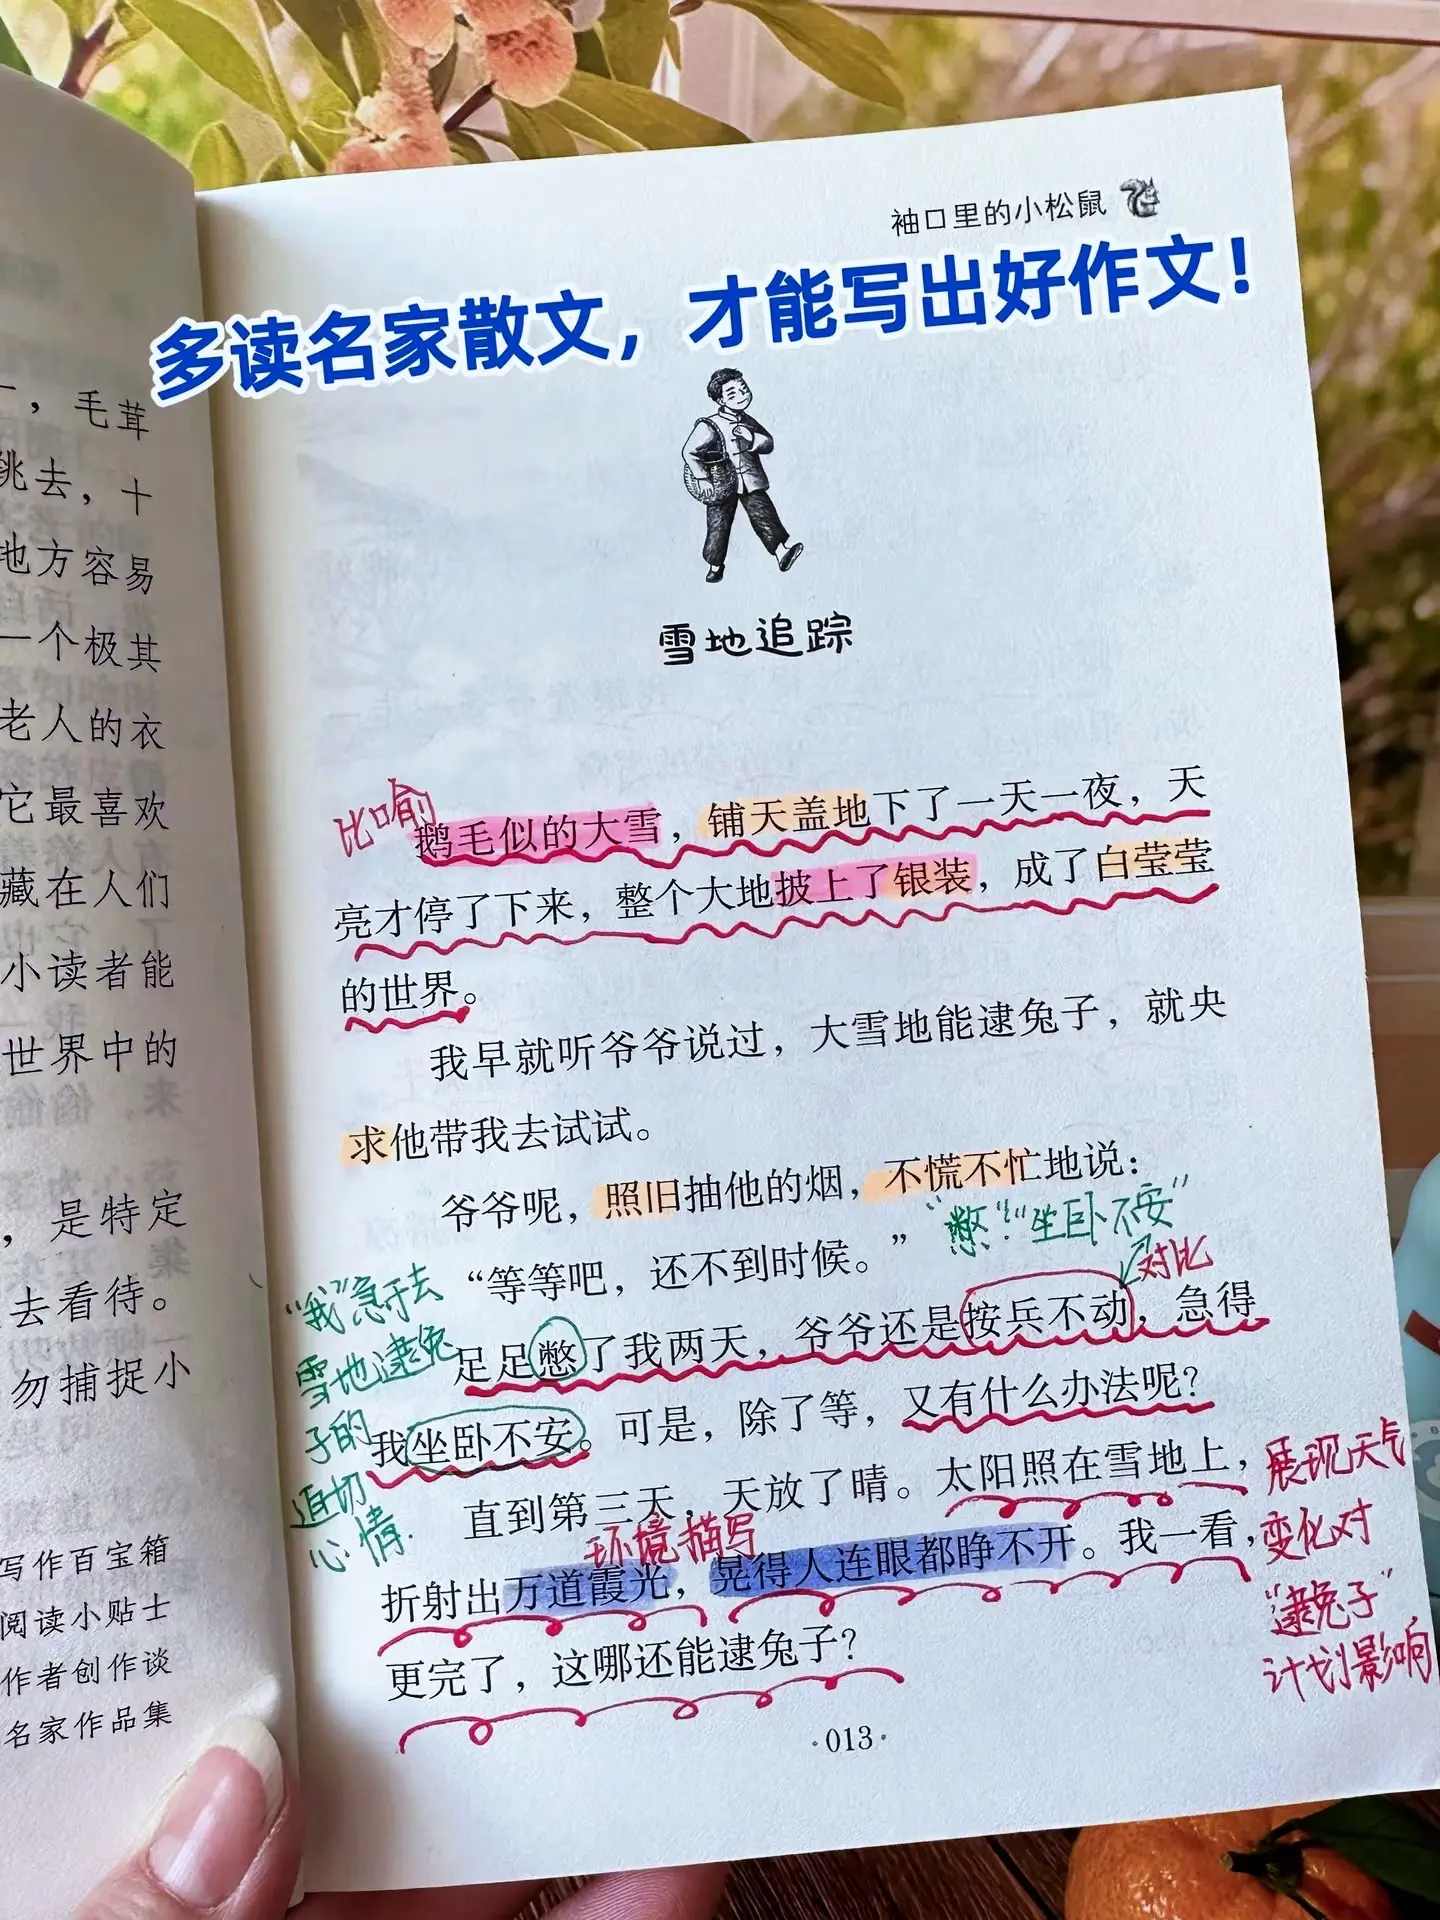 袖口里的小松鼠
多读名家散文，才能写出好作文！
，毛茸
跳去，十
地方容易
一个极其
老人的衣
它最喜欢
藏在人们
小读者能
世界中的
，是特定
去看待。
勿捕捉小
写作百宝箱
阅读小贴士
作者创作谈
名家作品集
雪地追踪
比喻
鹅毛似的大雪，铺天盖地下了一天一夜，天
亮才停了下来，整个大地披上了银装，成了白莹莹
的世界。
我早就听爷爷说过，大雪地能逮兔子，就央
求他带我去试试。
爷爷呢，照旧抽他的烟，不慌不忙地说：
“等等吧，还不到时候。”
“憋”“坐卧不安”
对比
足足憋了我两天，爷爷还是按兵不动，急得
我坐卧不安。可是，除了等，又有什么办法呢？
“我”急于去
雪地逮兔
子的
迫切
心情.
直到第三天，天放了晴。太阳照在雪地上，
环境描写
折射出万道霞光，晃得人连眼都睁不开。我一看，
更完了，这哪还能逮兔子？
展现天气
变化对
“逮兔子”
计划影响
·013·